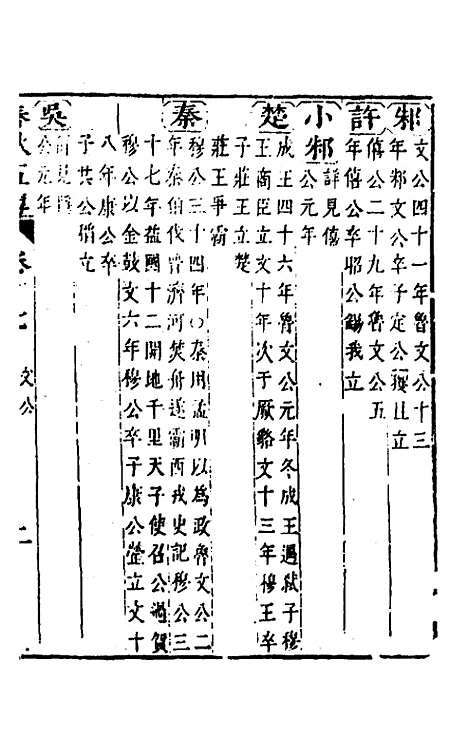 邾
文公四十一年魯文公十三
年邾文公卒子定公貜且立
許
僖公二十九年魯文公五
年僖公卒昭公錫我立
小邾
詳見僖
公元年
楚
成王四十六年魯文公元年冬成王遇弒子穆
王商臣立文十年次于厥貉文十三年穆王卒
子莊王立楚
莊王爭霸
秦
穆公三十四年〇秦用孟明以為政魯文公二
年秦伯伐晉濟河焚舟遂霸西戎史記穆公三
十七年益國十二開地千里天子使召公過賀
穆公以金鼓文六年穆公卒子康公罃立文十
八年康公卒
子共公稻立
吳
公元年
春秋五 卷十七 文公 二